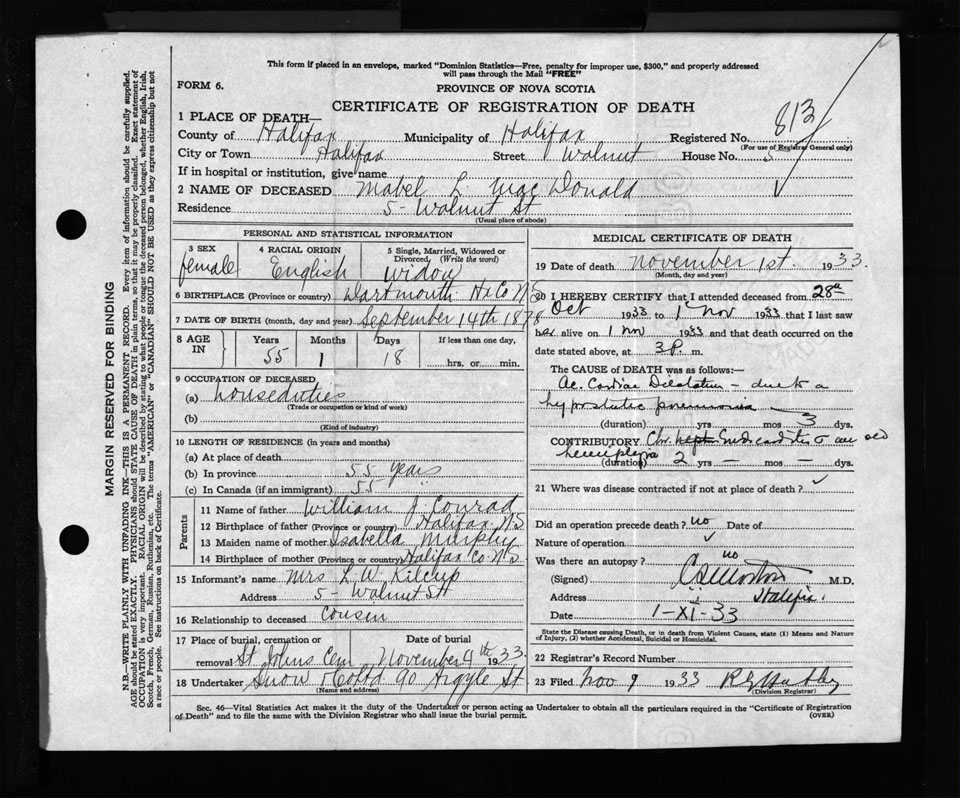 This form if placed in an envelope, marked "Dominion Statistics—Free, penalty for improper use, $300," and properly addressed
will pass through the Mail "FREE"
FORM 6.
PROVINCE OF NOVA SCOTIA
CERTIFICATE OF REGISTRATION OF DEATH
1 PLACE OF DEATH—
County of Halifax Municipality of Halifax Registered No. 813
(For use of Registrar General only)
City or Town Halifax Street Walnut House No. 5
If in hospital or institution, give name
2 NAME OF DECEASED Mabel L. MacDonald
Residence 5 - Walnut St
(Usual place of abode)
PERSONAL AND STATISTICAL INFORMATION
3 SEX female
4 RACIAL ORIGIN English
5 Single, Married, Widowed or Divorced, (Write the word) Widow
6 BIRTHPLACE (Province or country) Dartmouth Hx Co N.S
7 DATE OF BIRTH (month, day and year) September 14th 1878
8 AGE IN Years 55 Months 1 Days 18 If less than one day, hrs. or min.
9 OCCUPATION OF DECEASED
(a) houseduties
(Trade or occupation or kind of work)
(b)
(Kind of industry)
10 LENGTH OF RESIDENCE (in years and months)
(a) At place of death
(b) In province 55 years
(c) In Canada (if an immigrant) 55 "
Parents
11 Name of father William J Conrad
12 Birthplace of father (Province or country) Halifax N.S
13 Maiden name of mother Isabella Murphy
14 Birthplace of mother (Province or country) Halifax Co N S
15 Informant's name Mrs L. W. Kilcup
Address 5 - Walnut St
16 Relationship to deceased Cousin
17 Place of burial, cremation or Date of burial
removal St. Johns Cem November 4th 1933
18 Undertaker Snow & Co Ltd 90 Argyle St
(Name and address)
MEDICAL CERTIFICATE OF DEATH
19 Date of death November 1st. 1933.
(Month, day and year)
20 I HEREBY CERTIFY that I attended deceased from 28th
Oct 1933 to 1 Nov 1933 that I last saw
her alive on 1 Nov 1933 and that death occurred on the
date stated above, at 3 P. m.
The CAUSE of DEATH was as follows:—
Ac. Cardiac Dilatation - due to a
hypostatic pneumonia
(duration) yrs — mos 3 dys.
CONTRIBUTORY Chr. Endocarditis old
hemiplegia
(duration) 2 yrs — mos — dys.
21 Where was disease contracted if not at place of death?
Did an operation precede death? no Date of
Nature of operation
Was there an autopsy? no
(Signed) M.D.
Address Halifax.
Date 1-XI-33
State the Disease causing Death, or in death from Violent Causes, state (1) Means and Nature of Injury, (2) whether Accidental, Suicidal or Homicidal.
22 Registrar's Record Number
23 Filed Nov 9 1933
(Division Registrar)
Sec. 46—Vital Statistics Act makes it the duty of the Undertaker or person acting as Undertaker to obtain all the particulars required in the "Certificate of Registration
of Death" and to file the same with the Division Registrar who shall issue the burial permit. (OVER)
MARGIN RESERVED FOR BINDING
N.B.—WRITE PLAINLY WITH UNFADING INK—THIS IS A PERMANENT RECORD. Every item of information should be carefully supplied.
AGE should be stated EXACTLY. PHYSICIANS should STATE CAUSE OF DEATH in plain terms, so that it may be properly classified. Exact statement of
OCCUPATION is very important. RACIAL ORIGIN will be described by stating to what people or tongue the deceased person belonged, whether English, Irish,
Scotch, French, German, Russian, Ruthenian, etc. The terms "AMERICAN" or "CANADIAN" SHOULD NOT BE USED as they express citizenship but not
a race or people. See instructions on back of Certificate.